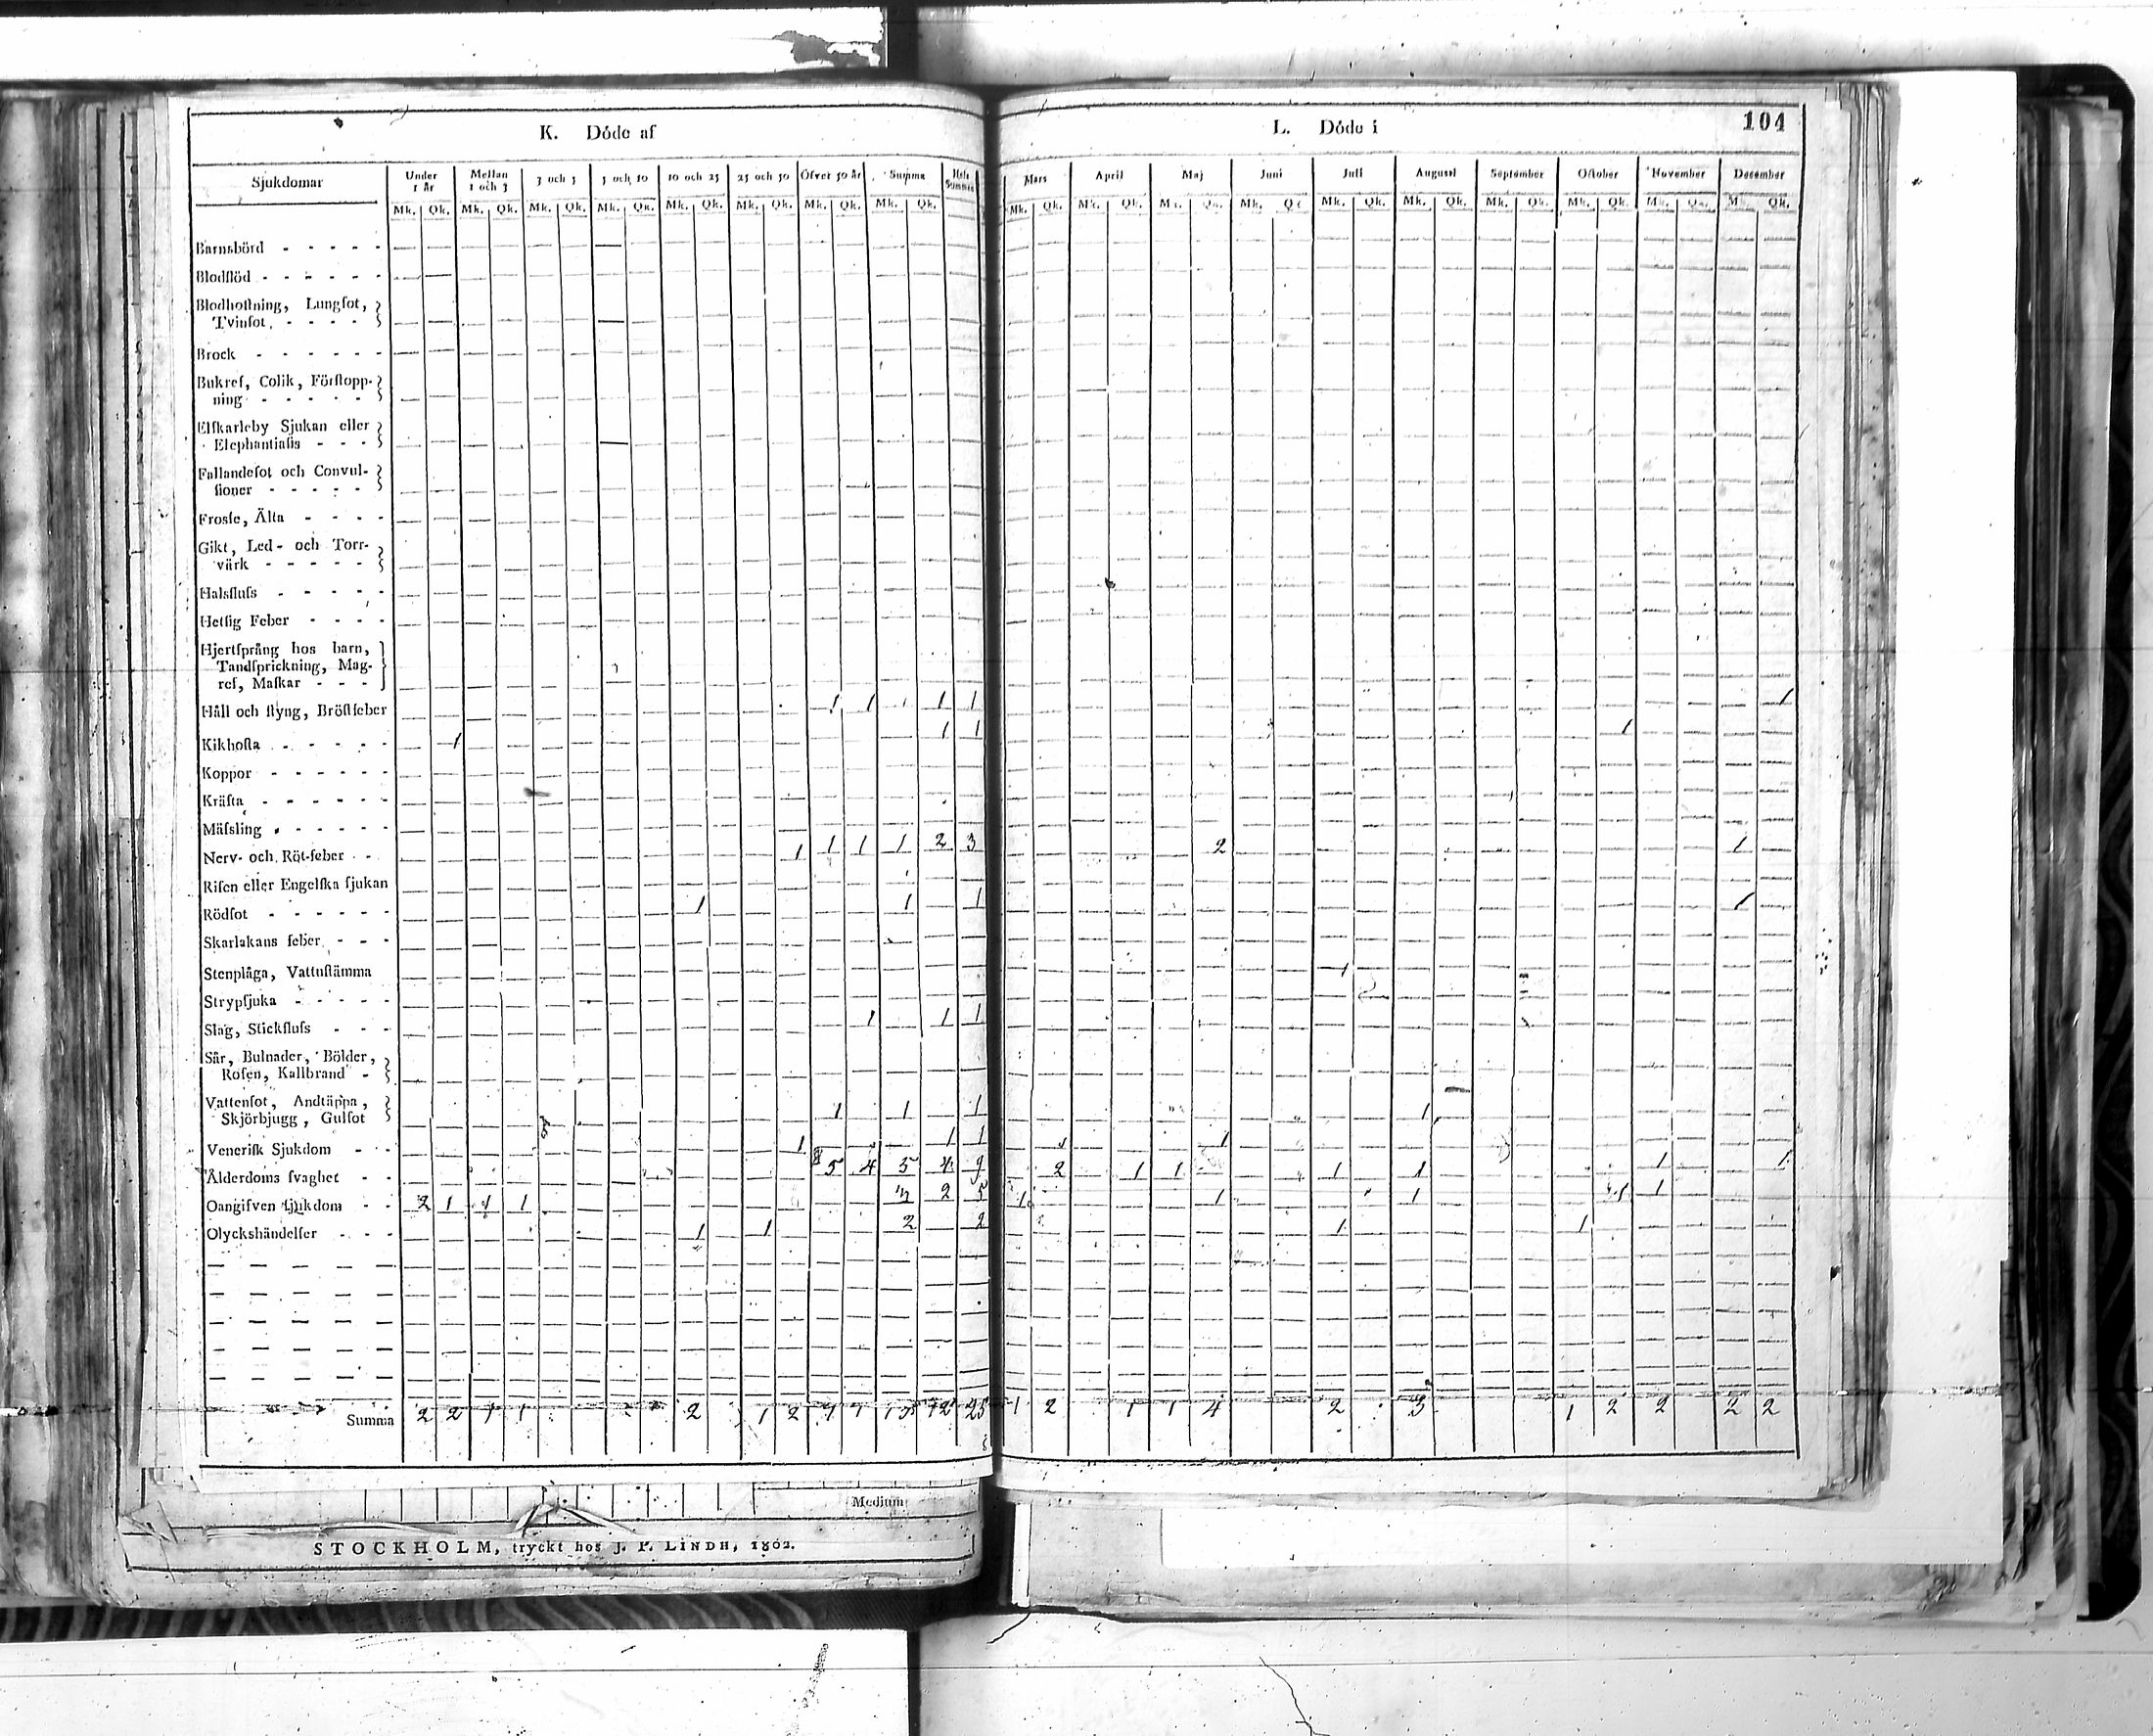 K. Döde af
Sjukdomar
Under 1 år
Mellan 1 och 3
3 och 5
5 och 10
10 och 25
25 och 50
Öfver 50 år
Summa
Hela Summan
Mk. Qk. Mk. Qk. Mk. Qk. Mk. Qk. Mk. Qk. Mk. Qk. Mk. Qk. Mk. Qk.
Barnsbörd - - - - -
Blodflöd - - - - - -
Blodhoſtning, Lungſot,
Tvinſot - - - -
Brock - - - - - -
Bukref, Colik, Förſtopp-
ning - - - - -
Elfkarleby Sjukan eller
Elephantiaſis - - -
Fallandeſot och Convul-
ſioner - - - - -
Froſſe, Älta - - - -
Gikt, Led- och Torr-
värk - - - - -
Halsfluſs - - - - -
Hetſig Feber - - - -
Hjertſprång hos barn,
Tandſprickning, Mag-
ref, Maſkar - - -
Håll och ſtyng, Bröſtfeber 1 1 1 1
Kikhoſta - - - - - 1 1 1
Koppor - - - - - -
Kräfta - - - - - -
Mäſsling - - - - -
Nerv- och Röt-feber - - 1 1 1 1 2 3
Riſen eller Engelſka ſjukan
Rödſot - - - - - - 1 1 1
Skarlakans feber - - -
Stenplåga, Vattuſtämma
Strypſjuka - - - - -
Slag, Stickfluſs - - - 1 1 1
Sår, Bulnader, Bölder,
Roſen, Kallbrand -
Vattenſot, Andtäppa,
Skjörbjugg, Gulſot 1 1 1
Veneriſk Sjukdom - - 1 1 1
Ålderdoms ſvaghet - - 5 4 5 4 9
Oangifven ſjukdom - - 2 1 1 1 3 2 5
Olyckshändelſer - - - 1 1 2 2
Summa 2 2 1 1 2 1 2 7 7 13 12 25
Medium
STOCKHOLM, tryckt hos J. P. LINDH, 1802.
L. Döde i
104
Mars April Maj Juni Juli Auguſti September October November December
Mk. Qk. Mk. Qk. Mk. Qk. Mk. Qk. Mk. Qk. Mk. Qk. Mk. Qk. Mk. Qk. Mk. Qk. Mk. Qk.
1
1
2 1
1
1
1
1
2 1 1 1 1 1 1
1 1 1 1 1
1 1
1 2 1 1 4 2 3 1 2 2 2 2